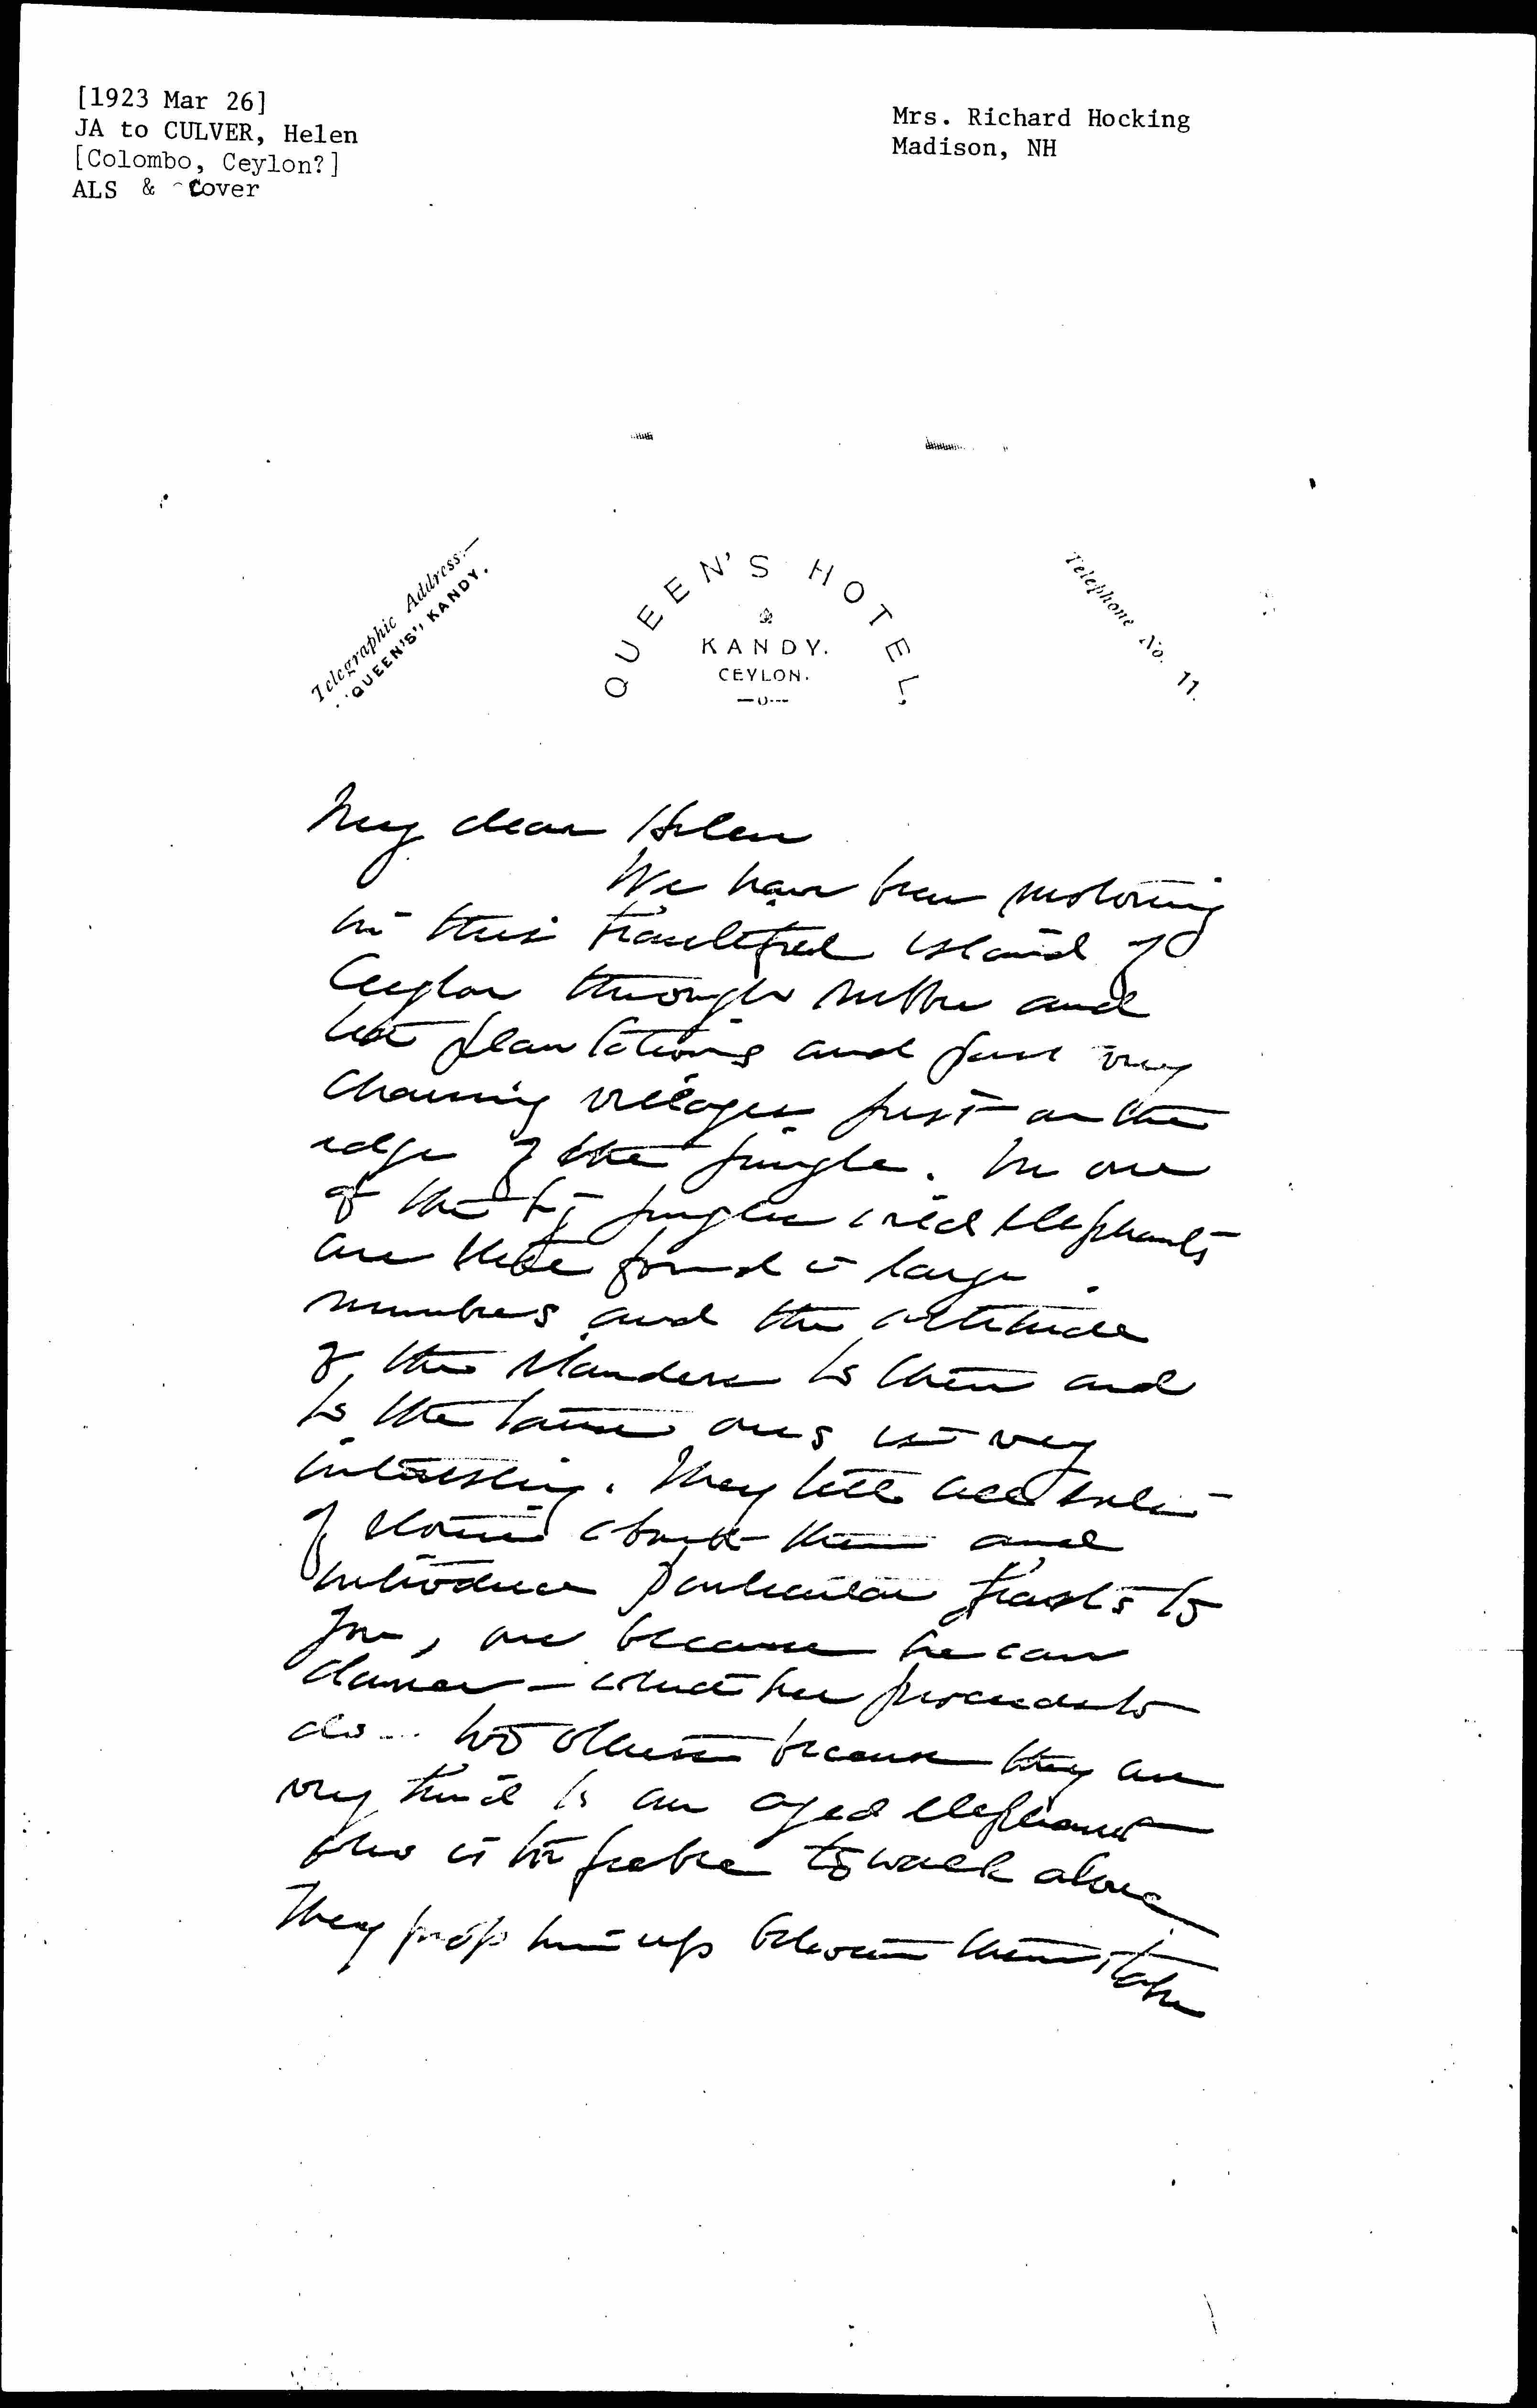 [1923 Mar 26]
JA to CULVER, Helen
[Colombo, Ceylon?]
ALS & Cover
Mrs. Richard Hocking
Madison, NH
Telegraphic Address:—
"QUEEN'S", KANDY.
QUEEN'S HOTEL,
KANDY.
CEYLON.
Telephone No. 11.
My dear Helen
We have been motoring
in this beautiful island of
Ceylon through rubber and
tea plantations and past very
charming villages just on the
edge of the jungle. In one
of the big jungles wild elephants
are to be found in large
numbers and the attitude
of the islanders to them and
to the tame ones is very
interesting. They tell all sorts
of stories about them and
introduce particular beasts to
you, one because he can
dance – which he proceeds to
do – two others because they are
very kind to an aged elephant
who is too feeble to walk alone
They prop him up between them, take